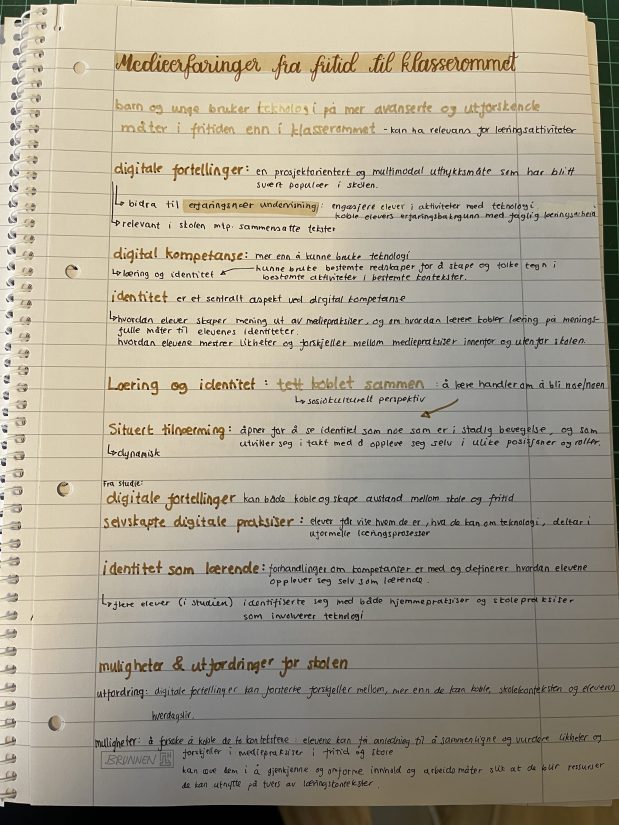 Medieerfaringer fra fritid til klasserommet
barn og unge bruker teknologi på mer avanserte og utforskende
måter i fritiden enn i klasserommet - kan ha relevans for læringsaktiviteter
digitale fortellinger: en prosjektorientert og multimodal uttrykksmåte som har blitt
svært populær i skolen.
↳ bidra til erfaringsnær undervisning: engasjere elever i aktiviteter med teknologi.
koble elevers erfaringsbakgrunn med faglig læringsarbeid
↳ relevant i skolen mtp. sammensatte tekster
digital kompetanse: mer enn å kunne bruke teknologi
↳ læring og identitet ← kunne bruke bestemte redskaper for å skape og tolke tegn i
bestemte aktiviteter i bestemte kontekster.
identitet er et sentralt aspekt ved digital kompetanse
↳ hvordan elever skaper mening ut av mediepraksiser, og om hvordan lærere kobler læring på menings-
fulle måter til elevenes identiteter.
hvordan elevene mestrer likheter og forskjeller mellom mediepraksiser innenfor og utenfor skolen.
Læring og identitet : tett koblet sammen : å lære handler om å bli noe/noen
↳ sosiokulturelt perspektiv
Situert tilnærming: åpner for å se identitet som noe som er i stadig bevegelse, og som
utvikler seg i takt med å oppleve seg selv i ulike posisjoner og roller.
↳ dynamisk
Fra studie:
digitale fortellinger kan både koble og skape avstand mellom skole og fritid
selvskapte digitale praksiser : elever får vise hvem de er, hva de kan om teknologi, deltar i
uformelle læringsprosesser
identitet som lærende: forhandlinger om kompetanser er med og definerer hvordan elevene
opplever seg selv som lærende.
↳ flere elever (i studien) identifiserte seg med både hjemmepraksiser og skolepraksiser
som involverer teknologi
muligheter & utfordringer for skolen
utfordring: digitale fortellinger kan forsterke forskjeller mellom, mer enn de kan koble, skolekonteksten og elevenes
hverdagsliv.
muligheter: å forsøke å koble de to kontekstene: elevene kan få anledning til å sammenligne og vurdere likheter og
forskjeller i mediepraksiser i fritid og skole
BRUNNEN
kan øve dem i å gjenkjenne og omforme innhold og arbeidsmåter slik at de blir ressurser
de kan utnytte på tvers av læringskontekster.